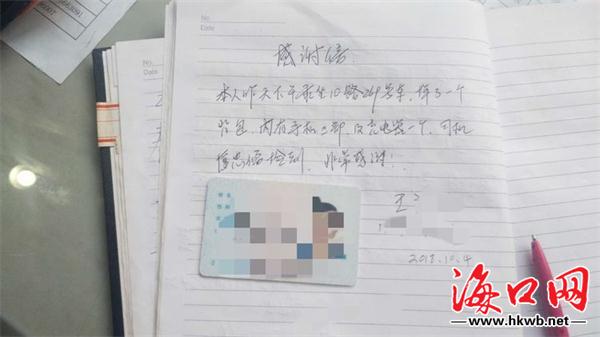 No.
Date
No.
Date
感谢信
本人昨天下午乘坐10路249号车, 掉了一个
背包, 内有手机一部, 及充电器一个, 司机
捡到, 非常感谢!
王
2018.10.4
海口网
www.hkwb.net